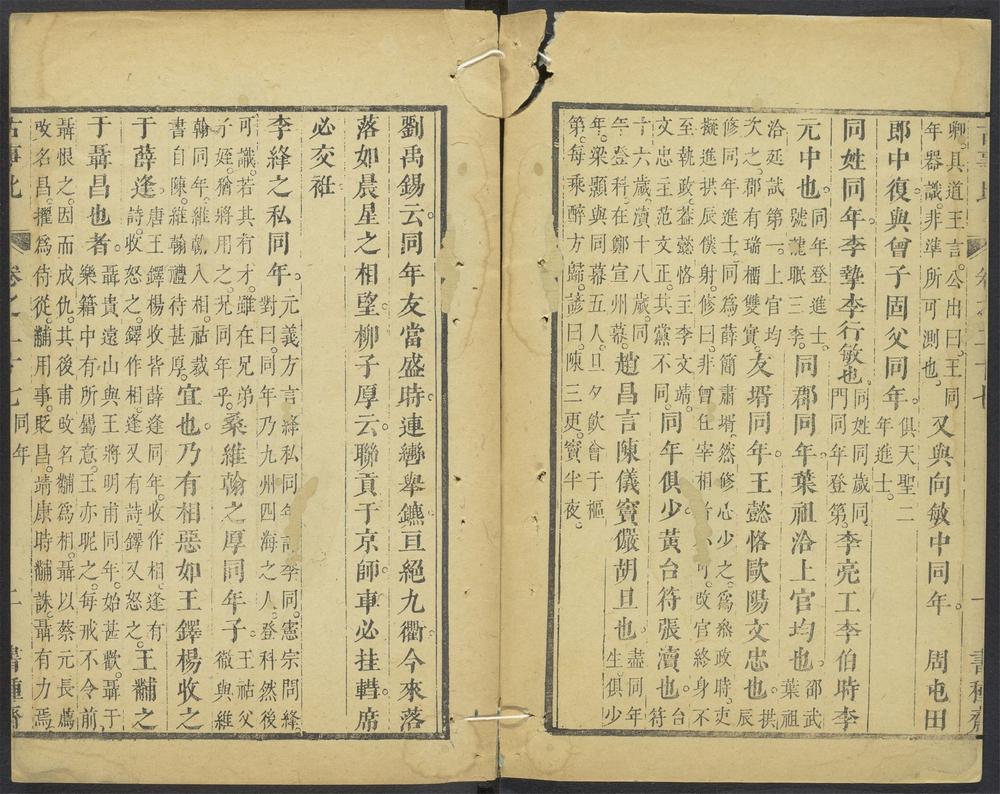 卿。具道王言。公出曰。王同
年器識。非準所可測也。
又與向敏中同年。周屯田
郎中復與曾子固父同年。
俱天聖二
年進士。
同姓同年。李摯李行敏也。
同姓同歲同
門同年登第。
李亮工李伯時李
元中也。
同年登進士。
號龍眠三李。
同郡同年。葉祖洽上官均也。
邵武
葉祖
洽廷試第一。上官均
次之。郡有瑞檑雙實。
友壻同年。王懿恪歐陽文忠也。
拱
辰
修同年進士。同為薛簡肅壻。然修心少之。為叅政時。吏
擬進拱辰僕射。修曰。非曾任宰相者不可。改官終身不
至執政。葢懿恪主李文靖。
文忠主范文正。其黨不同。
同年俱少。黃台符張瀆也。
台
符
十六歲。瀆十八歲。同
年登科。在鄭宣州幕。
趙昌言陳儀竇儼胡旦也。
盡同年
生俱少
年。梁顥與同幕五人。旦夕飲會于樞
第。每乘醉方歸。諺曰。陳三更。竇半夜。
劉禹錫云。同年友當盛時。連轡舉鑣。亘絕九衢。今來落
落如晨星之相望。柳子厚云。聯貢于京師。車必挂轊。席
必交袵。
李絳之私同年。
元義方言絳私同年許季同。憲宗問絳。
對曰。同年乃九州四海之人。登科然後
可識。若其有才。雖在兄弟
子姪。猶將用之。况同年乎。
桑維翰之厚同年子。
王祜父
徹與維
翰同年。維翰入相。祜裁
書自陳。維翰禮待甚厚。
宜也。乃有相惡如王鐸楊收之
于薛逢。
唐王鐸楊收皆薛逢同年。收作相。逢有
詩。收怒之。鐸作相。逢又有詩。鐸又怒之。
王黼之
于聶昌也者。
聶貴遠山與王將明甫同年。始甚歡。聶于
樂籍中有所屬意。王亦昵之。每戒不令前。
聶恨之。因而成仇。其後甫攺名黼為相。聶以蔡元長薦
攺名昌。擢為侍從。黼用事。貶昌。靖康時黼誅。聶有力焉。
古事比
卷之二十七
同年
二
書種齋